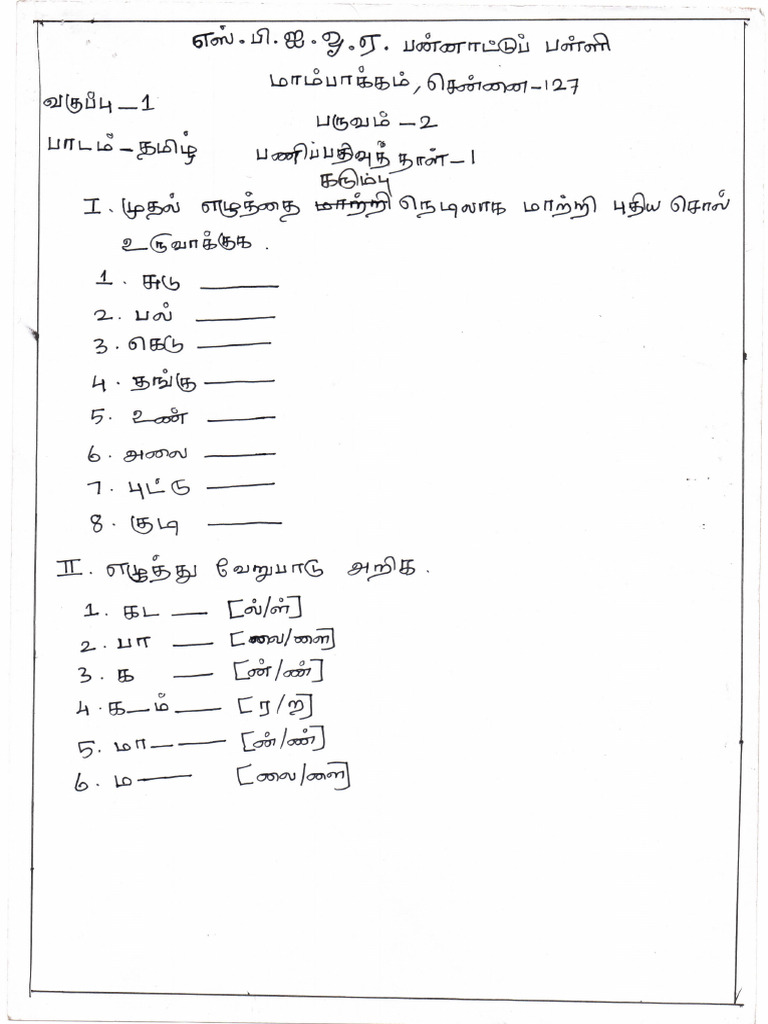 எஸ்.பி.ஐ.ஓ.ஏ. பன்னாட்டுப் பள்ளி
மாம்பாக்கம், சென்னை-127
வகுப்பு - 1
பருவம் - 2
பாடம் - தமிழ்
பணிப்பதிவுத் தாள்-1
கடும்பு
I. முதல் எழுத்தை மாற்றி நெடிலாக மாற்றி புதிய சொல்
உருவாக்குக.
1. சுடு ______
2. பல் ______
3. கெடு ______
4. தங்கு ______
5. உண் ______
6. அலை ______
7. புட்டு ______
8. குடி ______
II. எழுத்து வேறுபாடு அறிக.
1. கட ___ [ல்/ள்]
2. பா ___ [லை/ளை]
3. க ___ [ன்/ண்]
4. க_ம் ___ [ர/ற]
5. மா_____ [ன்/ண்]
6. ம____ [லை/ளை]